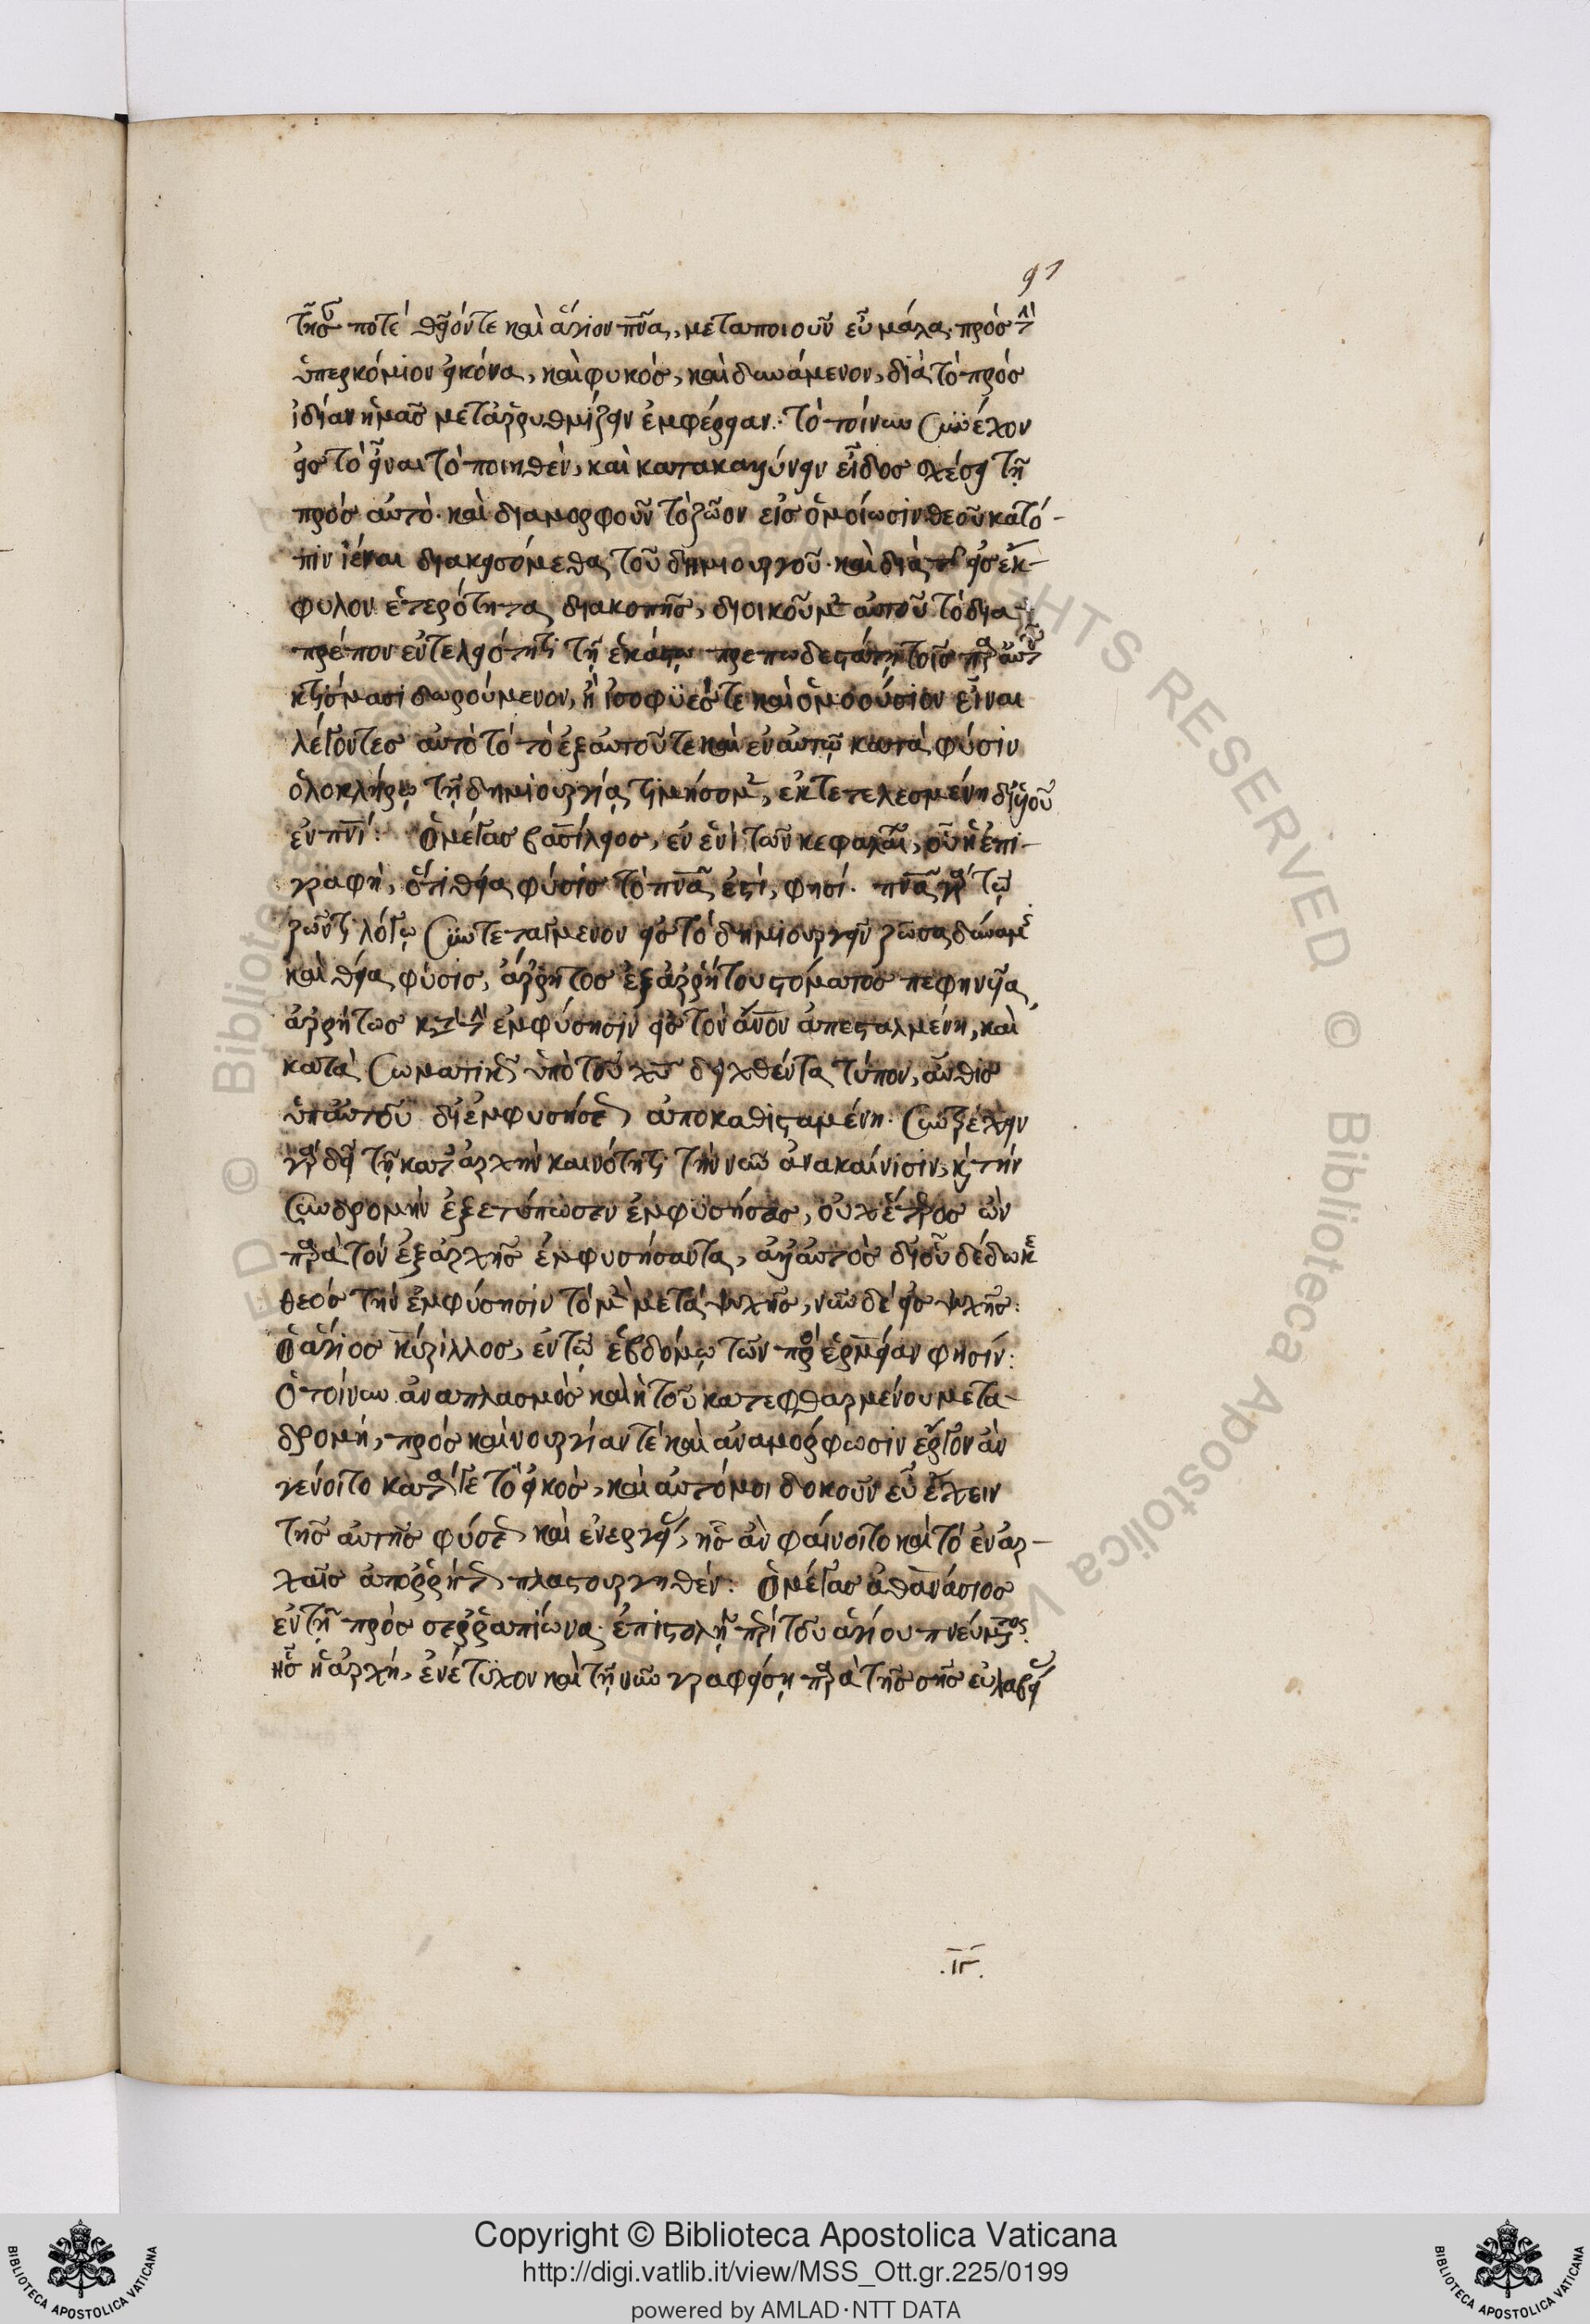 91
τῆς ποτὲ θεῖόν τε καὶ ἅγιον πνᾶ, μεταποιοῦν εὖ μάλα πρὸς τὴν
ὑπερκόσμιον εἰκόνα, καὶ
ἰδίαν ἡμᾶς μεταρρυθμίζειν ἐμφέρειαν. τὸ τοίνυν συνέχον
εἰς τὸ εἶναι τὸ ποιηθέν, καὶ κατακαλλύνειν εἶδος σχέσει τῇ
πρὸς αὐτὸ καὶ διαμορφοῦν τὸ ζῶον εἰς ὁμοίωσιν θεοῦ κατό-
πιν ἰέναι διακεισόμεθα τοῦ δημιουργοῦ καὶ διὰ τῆς εἰς ἔκ-
φυλον ἑτερότητα διακοπῆς, διοικοῦμεν αὐτοῦ τὸ δια-
πρέπον
κτίσμασι δωρούμενον, ἢ ἰσοφυές τε καὶ ὁμοούσιον εἶναι
λέγοντες αὐτὸ τὸ ἐξ αὐτοῦ τε καὶ ἐν αὐτῷ κατὰ φύσιν
ὁλοκλήρῳ τῇ δημιουργίᾳ τιμήσομεν, ἐκτετελεσμένη δι' υἱοῦ
ἐν πνι: Ὁ μέγας βασίλειος, ἐν ἑνὶ τῶν κεφαλαίων, οὗ ἡ ἐπι-
γραφή, ὅτι θεία φύσις τὸ πνᾶ ἐστί, φησί. πνᾶ γὰρ τῷ
ζῶντι λόγῳ συντεταγμένον εἰς τὸ δημιουργεῖν ζῶσα δύναμις
καὶ θεία φύσις, ἄρρητος ἐξ ἀρρήτου στόματος πεφηνυῖα,
ἀρρήτως κατὰ τὴν ἐμφύσησιν εἰς τὸν ἄνον ἀπεσταλμένη, καὶ
κατὰ σωματικῶς ὑπὸ τοῦ χυ δειχθέντα τύπον, αὖθις
ὑπ' αὐτοῦ δι' ἐμφυσήσεως ἀποκαθισταμένη. συντρέχειν
γὰρ δεῖ τῇ κατ' ἀρχὴν καινότητι τὴν νῦν ἀνακαίνισιν, καὶ τὴν
συνδρομὴν ἐξετύπωσεν ἐμφυσήσας, οὐχ ἕτερος ὢν
παρὰ τὸν ἐξ ἀρχῆς ἐμφυσήσαντα, ἀλλ' αὐτὸς δι' οὗ δέδωκε
θεὸς τὴν ἐμφύσησιν τὸ μὲν μετὰ ψυχῆς, νῦν δὲ εἰς ψυχῆς:
Ὁ ἅγιος κύριλλος, ἐν τῷ ἑβδόμῳ τῶν πρὸς ἑρμείαν φησίν:
Ὁ τοίνυν ἀναπλασμὸς καὶ ἡ τοῦ κατεφθαρμένου μετα-
δρομή, πρὸς καινουργίαν τε καὶ ἀναμόρφωσιν ἔργον ἂν
γένοιτο κατά γε τὸ εἰκός, καὶ αὐτό μοι δοκοῦν εὖ ἔχειν
τῆς αὐτῆς φύσεως καὶ ἐνεργείας, ἧς ἂν φαίνοιτο καὶ τὸ ἐν ἀρ-
χαῖς ἀπορρήτως πλαστουργηθέν: Ὁ μέγας ἀθανάσιος
ἐν τῇ πρὸς σερραπίωνα ἐπιστολῇ περὶ τοῦ ἁγίου πνεύματος.
ἧς ἡ ἀρχή, ἐνέτυχον καὶ τῇ νῦν γραφείσῃ παρὰ τῆς σῆς εὐλαβείας
.ιγ.
Copyright © Biblioteca Apostolica Vaticana
http://digi.vatlib.it/view/MSS_Ott.gr.225/0199
powered by AMLAD·NTT DATA